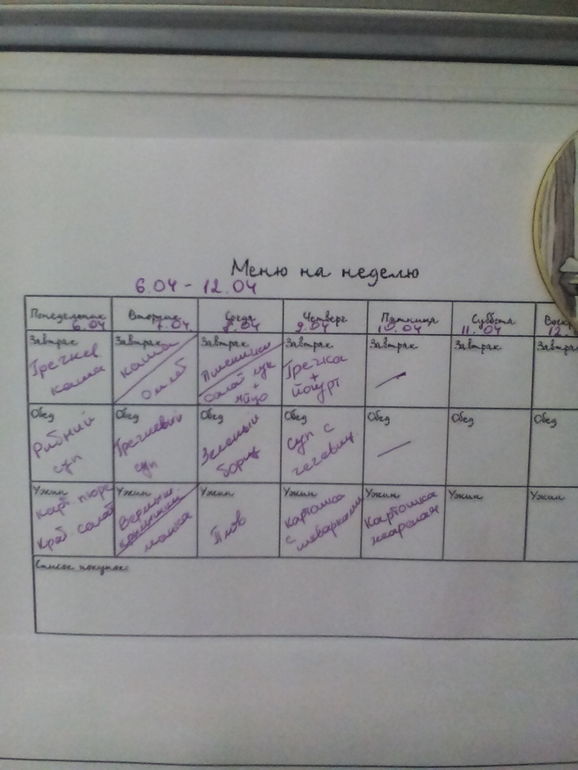 Меню на неделю
6.04 - 12.04
Понедельник Вторник Среда Четверг Пятница Суббота
6.04 7.04 8.04 9.04 10.04 11.04 12
Завтрак Завтрак Завтрак Завтрак Завтрак Завтрак Завтрак
каша
каша Омлет
салат
+
яйцо
Гречка
+
йогурт
—
Обед Обед Обед Обед Обед Обед Обед
Рибний
суп
Гречневий
суп
Зеленый
борщ
Суп с
чечевиц
—
Ужин Ужин Ужин Ужин Ужин Ужин Ужин
Карт пюре
Краб салат
Плов
Картошка
с
Картошка
жареная
Список покупок: